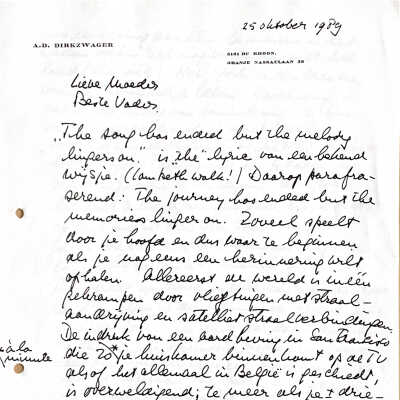 25 oktober 1989
A.D. DIRKZWAGER
3161 DC RHOON,
ORANJE NASSAULAAN 38
Lieve Moeder
Beste Vader.
"The song has ended but the melody
lingers on." is "the" lyric van een bekend
wijsje. (Lambeth walk!) Daarop parafra-
serend: The journey has ended but the
memories linger on. Zoveel speelt
door je hoofd en dus waar te beginnen
als je nog eens een herinnering wilt
ophalen. Allereerst de wereld is inéén
gekrompen door vliegtuigen met straal-
aandrijving en satelliet straalverbindingen.
De indruk van een aardbeving in San Francisco
à la
minute
die zo je huiskamer binnenkomt op de TV
alsof het allemaal in België is geschiedt,
is overweldigend; te meer als je ± drie-